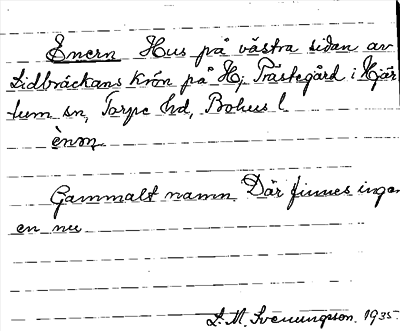 Enern Hus på västra sidan av
Lidbräckans krön på Hj. Prästegård i Hjär
tum sn, Torpe hd, Bohus l.
ènɔn
Gammalt namn. Där finnes ingen
en nu
L. M. Svenungsson. 1935.